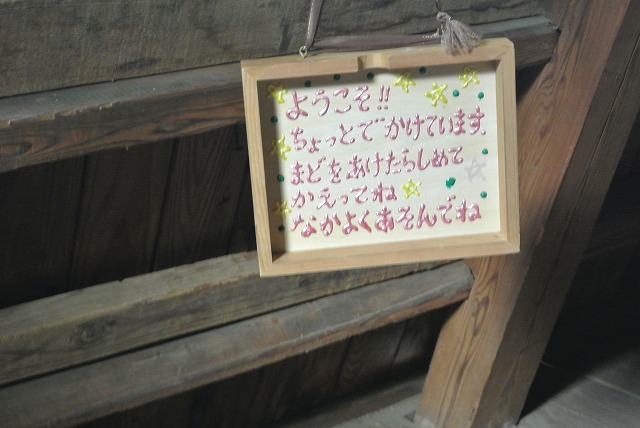 ようこそ!!
ちょっとでかけています。
まどをあけたらしめて
かえってね
なかよくあそんでね